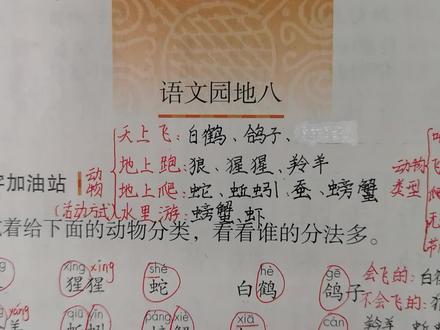 语文园地八
天上飞:白鹤、鸽子、
动物 地上跑:狼、猩猩、羚羊
字加油站 地上爬:蛇、蚯蚓、蚕、螃蟹
(活动方式) 水里游:螃蟹、虾
动物类型
着给下面的动物分类,看看谁的分法多。
xīng xīng shé hè gē
猩猩 蛇 白鹤 鸽子
会飞的:白
不会飞的:狼
yáng qiū xiè xiā cán
羚羊